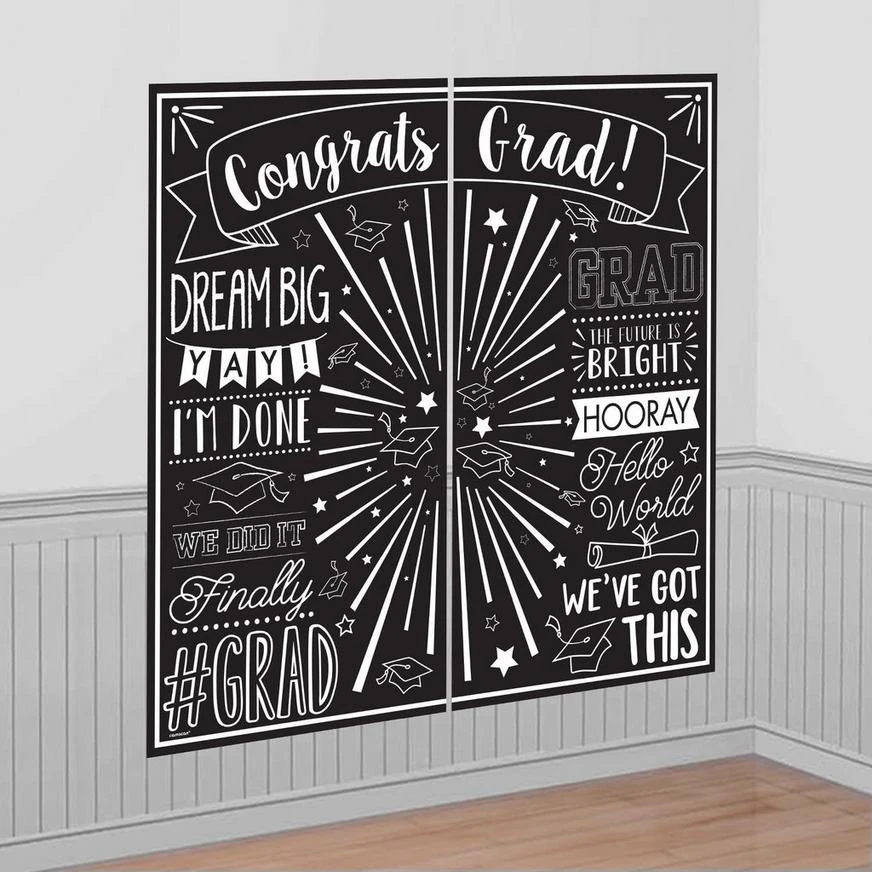 Congrats Grad!
DREAM BIG
YAY!
I'M DONE
WE DID IT
Finally
#GRAD
amscan
GRAD
THE FUTURE IS
BRIGHT
HOORAY
Hello
World
WE'VE GOT
THIS